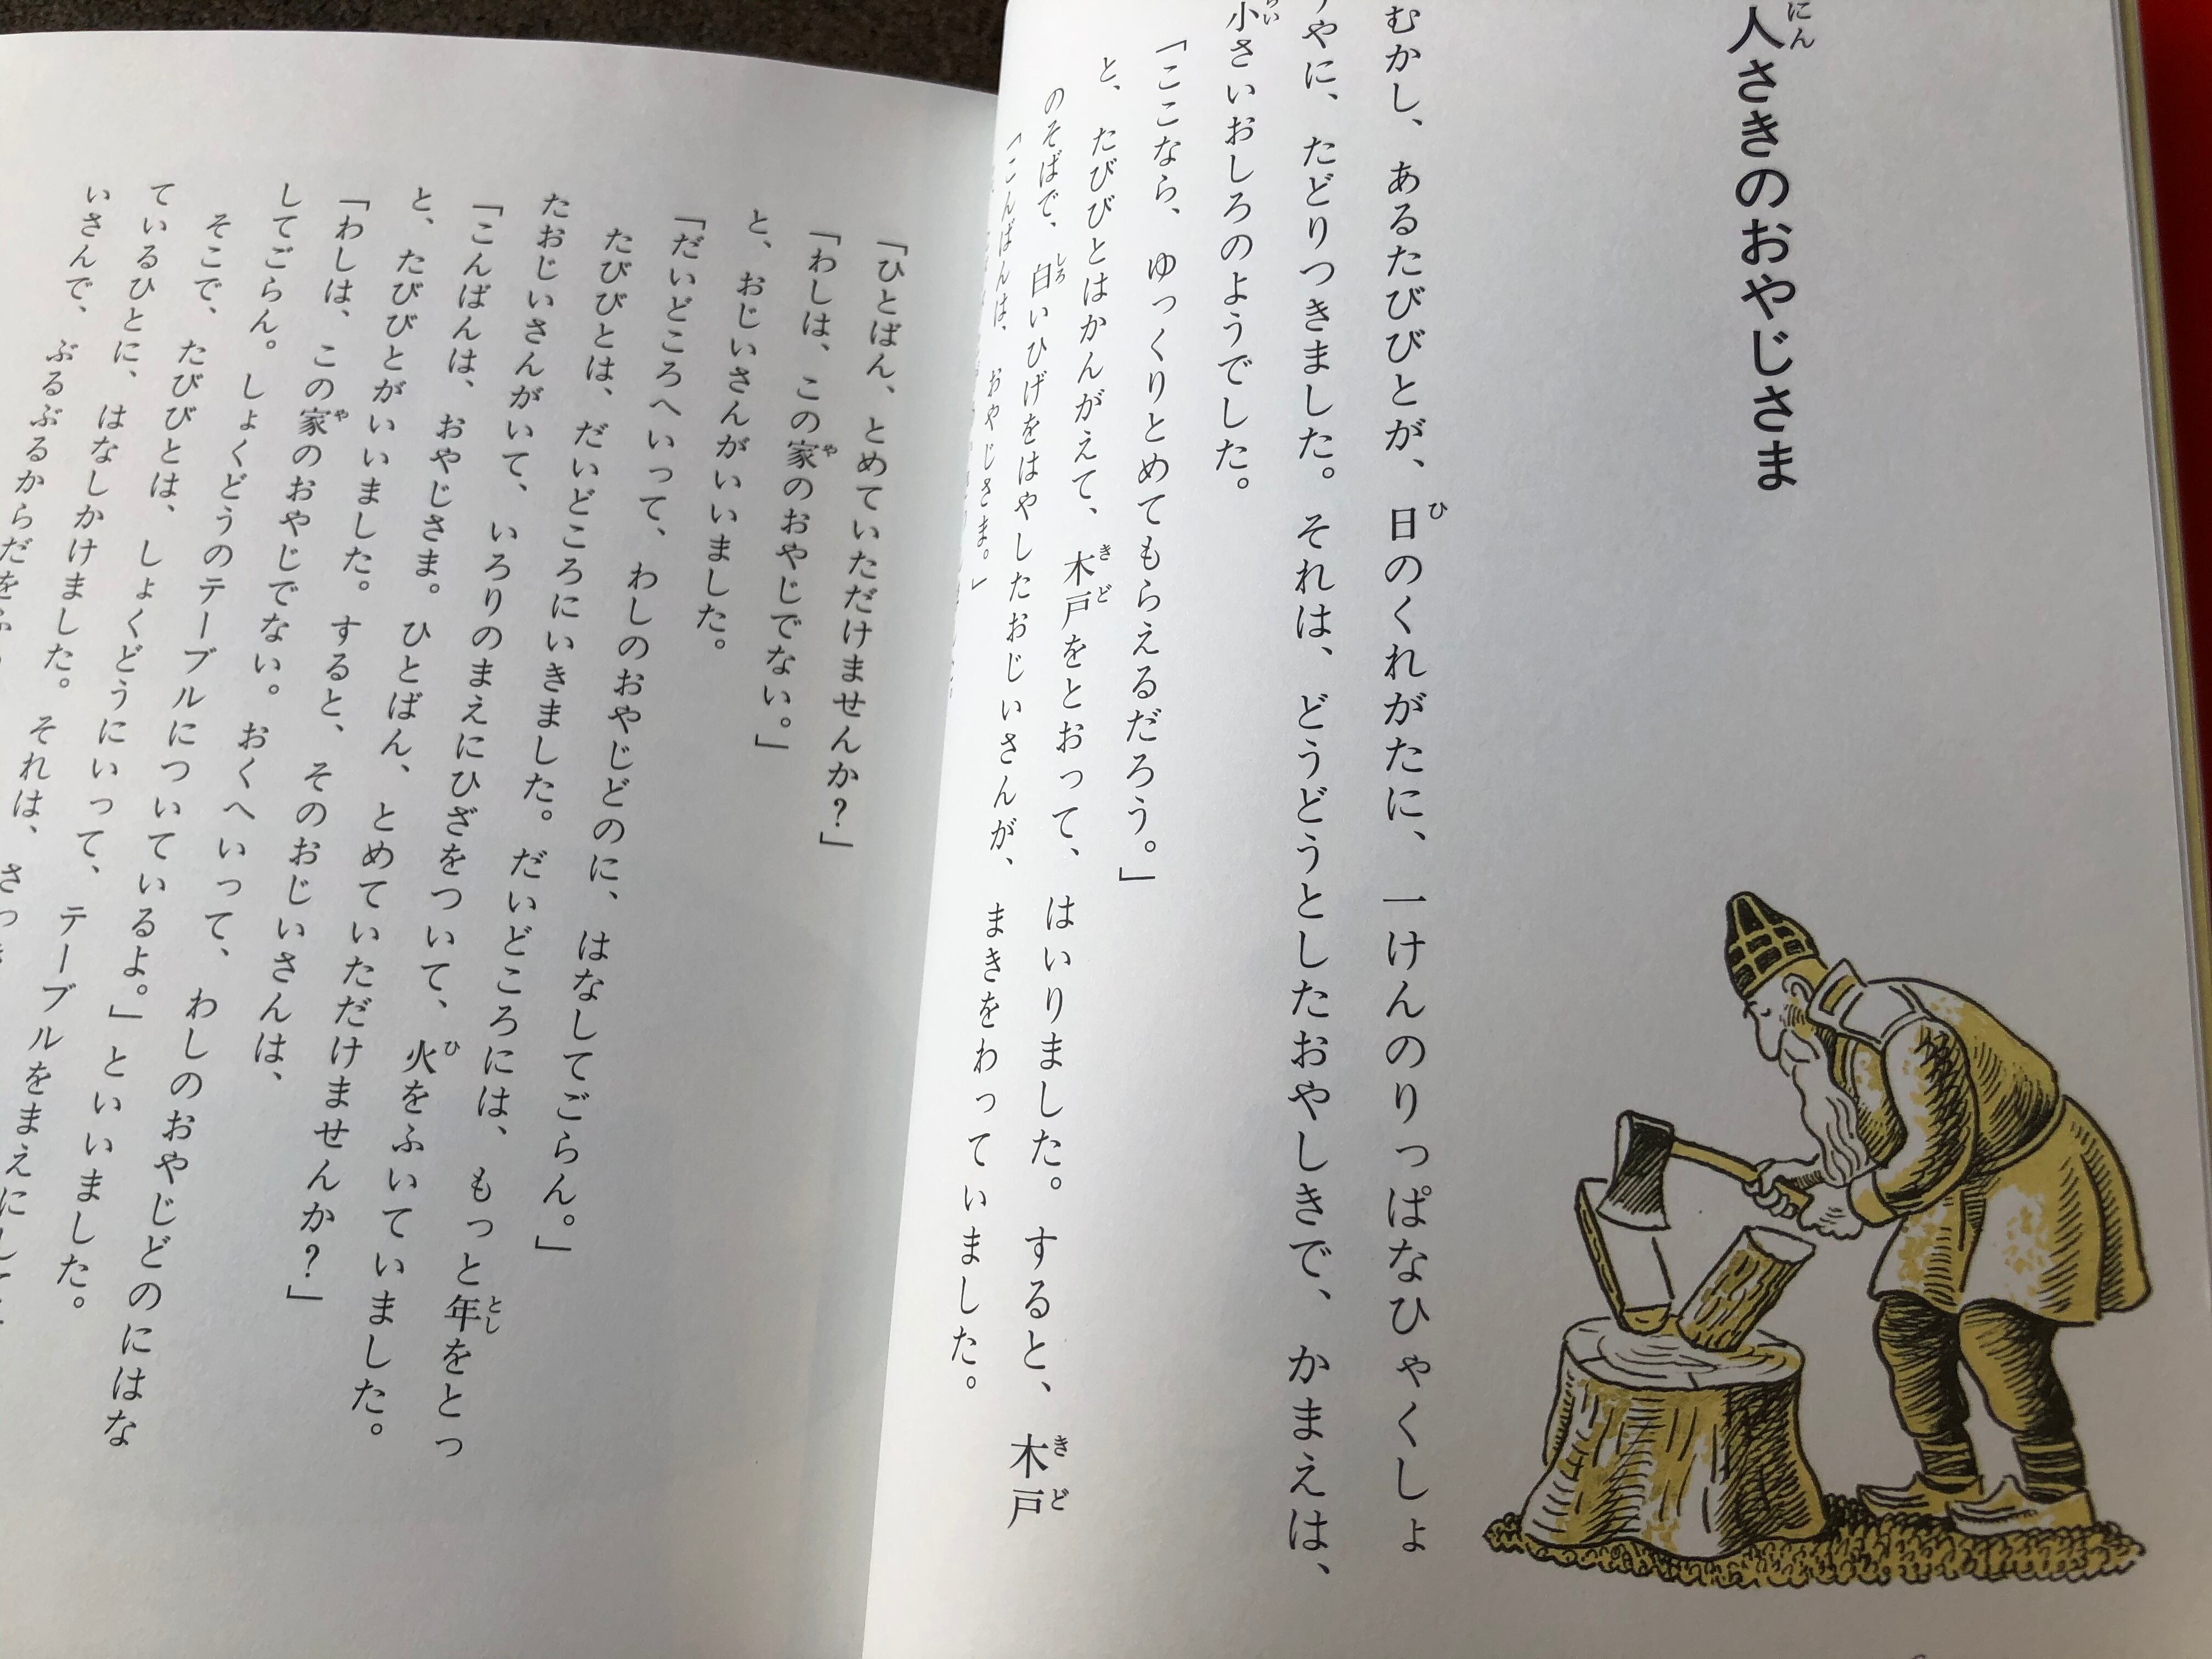 人さきのおやじさま
むかし、あるたびびとが、日のくれがたに、一けんのりっぱなひゃくしょ
やに、たどりつきました。それは、どうどうとしたおやしきで、かまえは、
小さいおしろのようでした。
「ここなら、ゆっくりとめてもらえるだろう。」
と、たびびとはかんがえて、木戸をとおって、はいりました。すると、木戸
のそばで、白いひげをはやしたおじいさんが、まきをわっていました。
「こんばんは、おやじさま。」
「ひとばん、とめていただけませんか?」
「わしは、この家のおやじでない。」
と、おじいさんがいいました。
「だいどころへいって、わしのおやじどのに、はなしてごらん。」
たびびとは、だいどころにいきました。だいどころには、もっと年をとっ
たおじいさんがいて、いろりのまえにひざをついて、火をふいていました。
「こんばんは、おやじさま。ひとばん、とめていただけませんか?」
と、たびびとがいいました。すると、そのおじいさんは、
「わしは、この家のおやじでない。おくへいって、わしのおやじどのにはな
してごらん。しょくどうのテーブルについているよ。」といいました。
そこで、たびびとは、しょくどうにいって、テーブルをまえにし
ているひとに、はなしかけました。それは、さっき
いさんで、ぶるぶるからだを